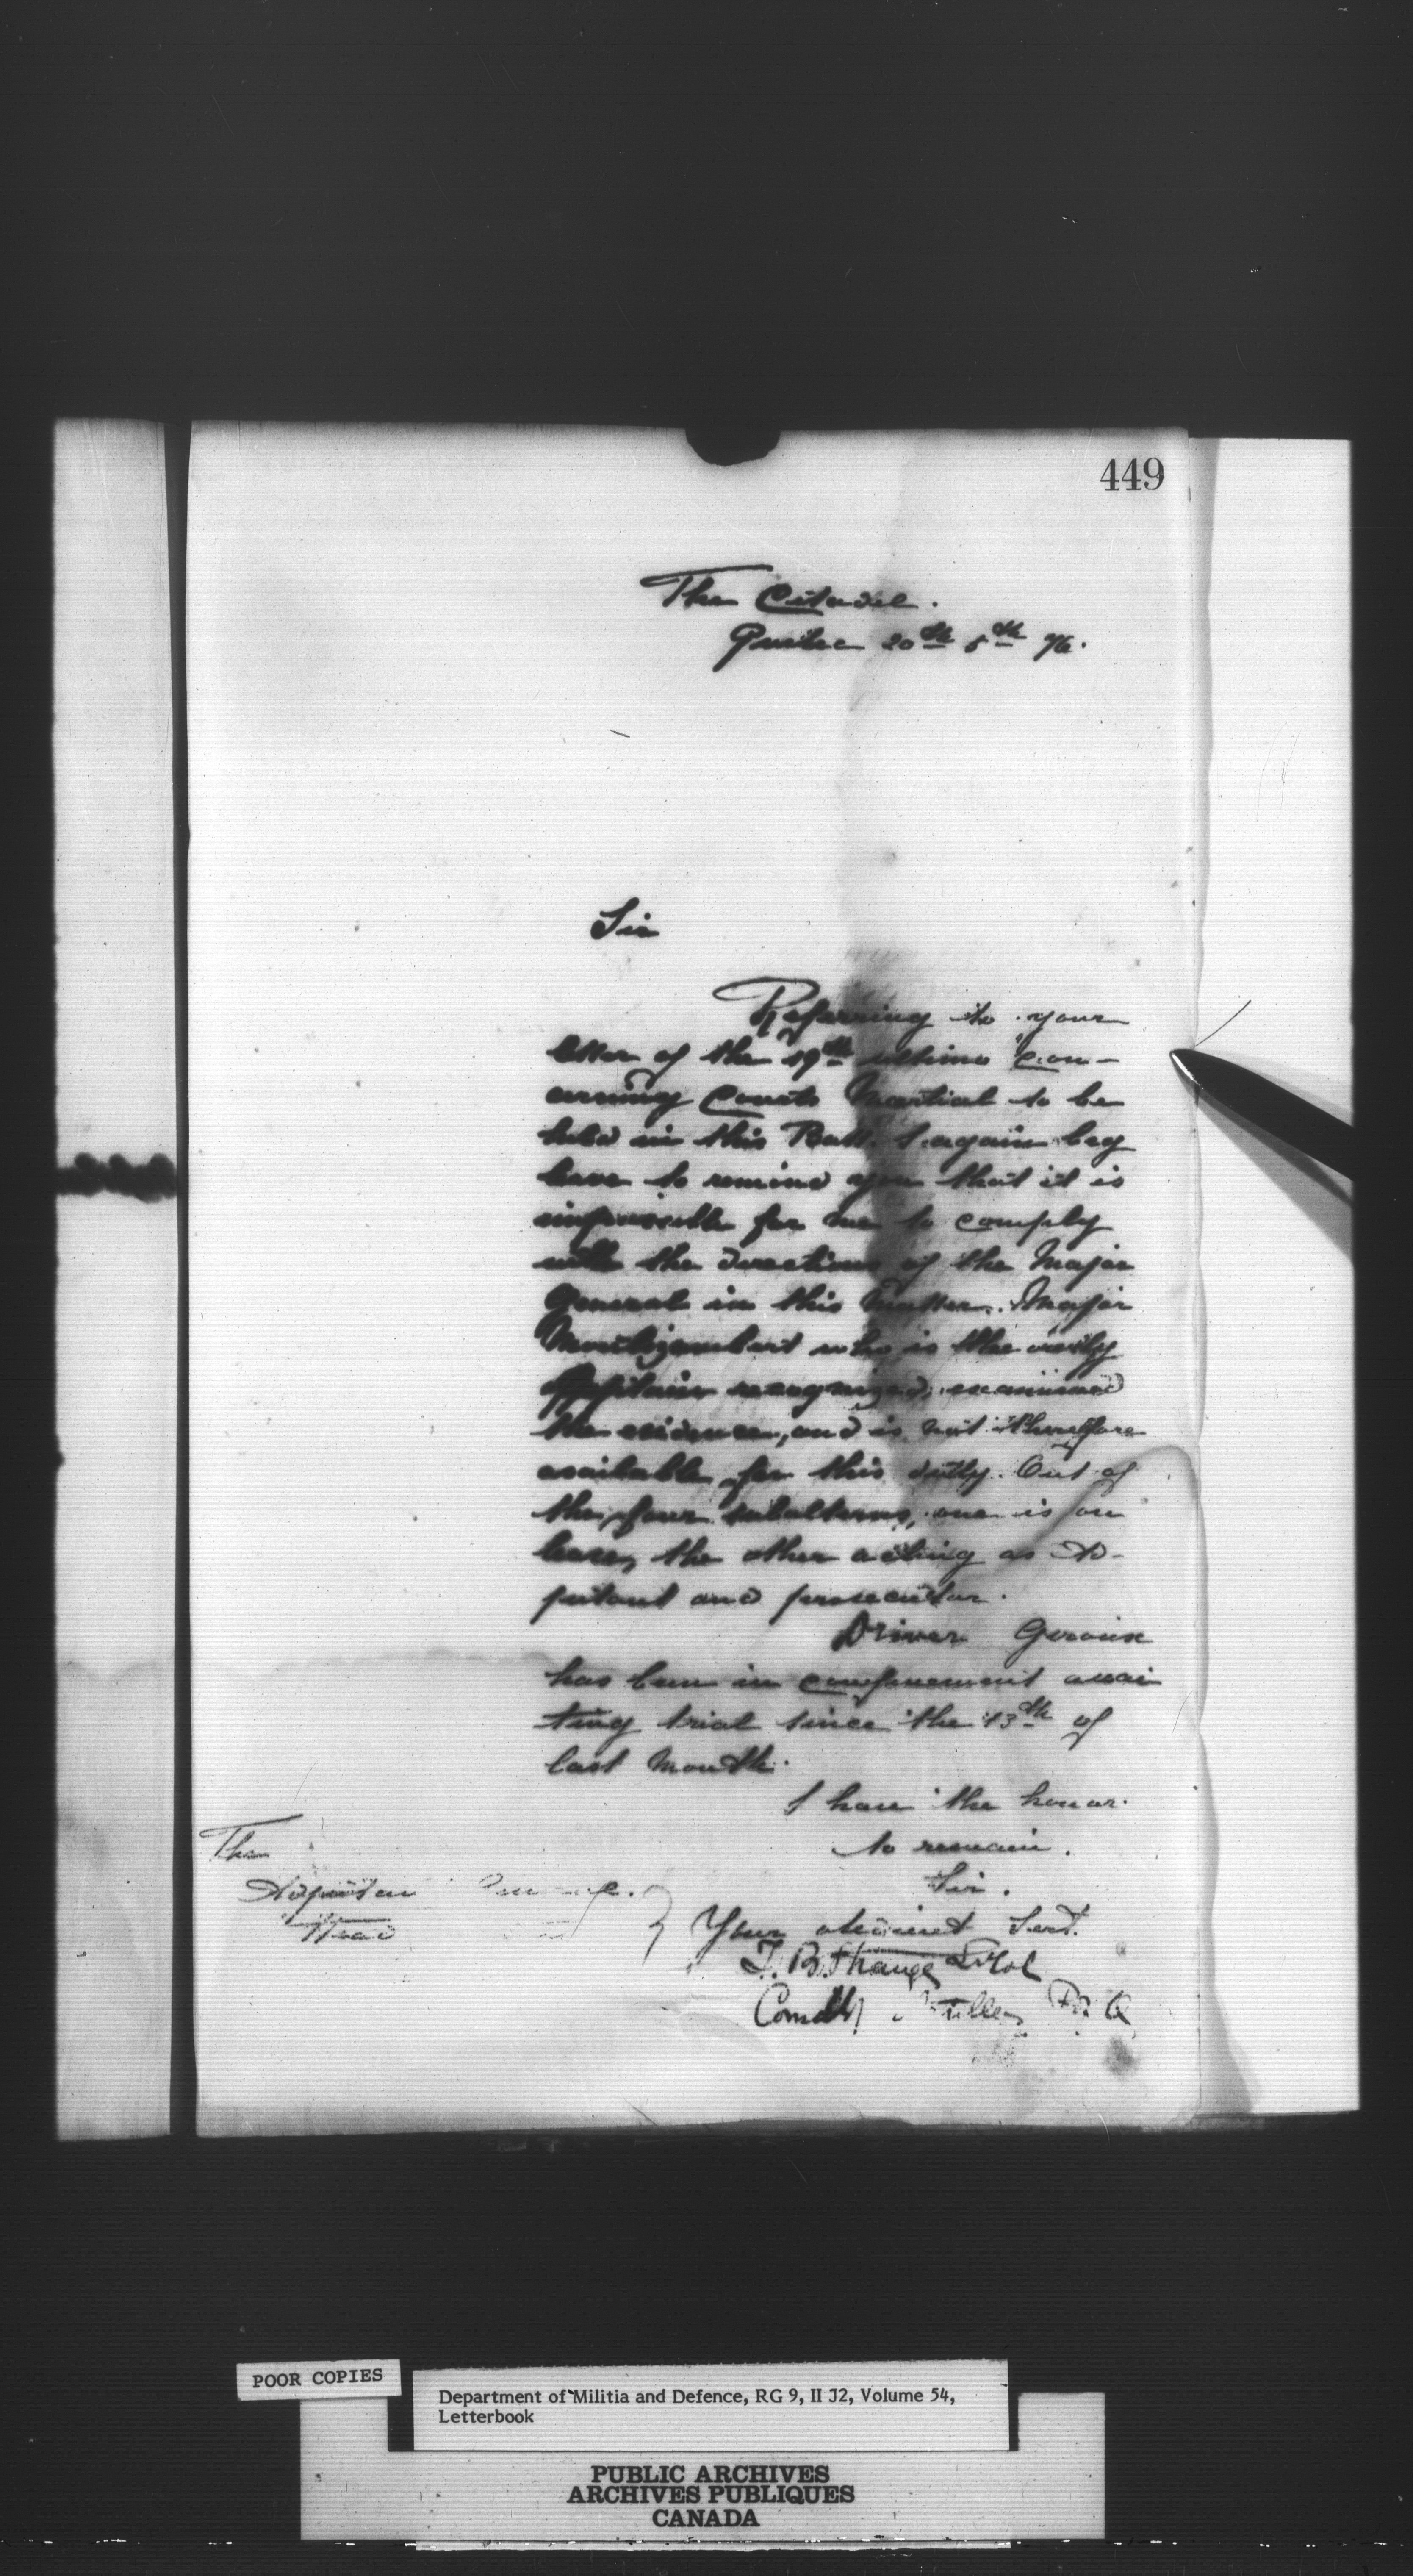 449
The Citadel.
Quebec 20th 5th 76.
Sir
Referring to your
letter of the 19th ultimo con-
cerning Courts Martial to be
held in this Batt. I again beg
leave to remind you that it is
impossible for me to comply
with the directions of the Major
General in this matter. Major
Montizambert who is the only
Captain recognized, examined
the evidence, and is not therefore
available for this duty. Out of
the four subalterns, one is on
leave, the other acting as Ad-
jutant and prosecutor.
Driver Geroux
has been in confinement awai
ting trial since the 13th of
last month.
I have the honor.
to remain.
Sir.
The
Adjutant
Head
Your obedient Sert.
T. B. Strange Lt Col
Comdt
POOR COPIES
Department of Militia and Defence, RG 9, II J2, Volume 54,
Letterbook
PUBLIC ARCHIVES
ARCHIVES PUBLIQUES
CANADA